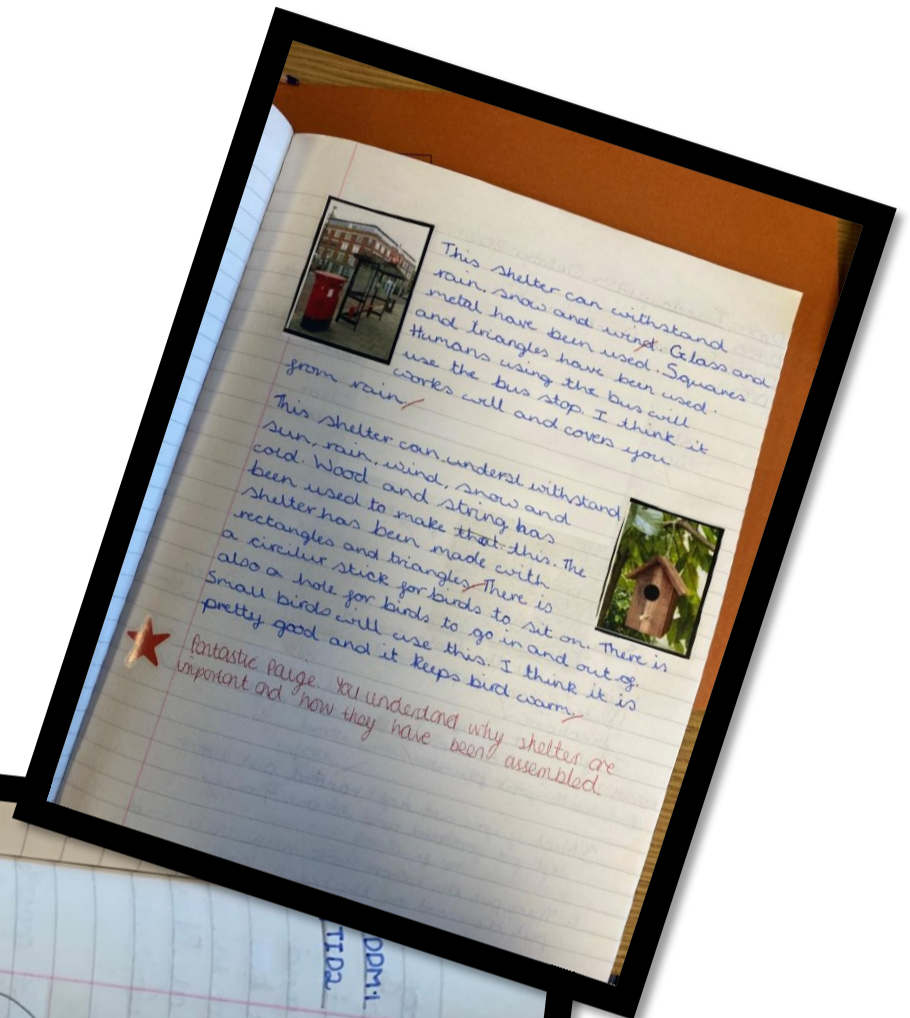 This shelter can withstand
rain, snow and wind. Glass and
metal have been used. Squares
and triangles have been used.
Humans using the bus will
use the bus stop. I think it
works well and covers you
from rain.
This shelter can underst withstand
sun, rain, wind, snow and
cold. Wood and string has
been used to make that this. The
shelter has been made with
rectangles and triangles. There is
a circilur stick for birds to sit on. There is
also a hole for birds to go in and out of.
Small birds will use this. I think it is
pretty good and it keeps bird warm.
Fantastic Paige. You understand why shelter are
important and how they have been assembled.
DDM.1
TID2